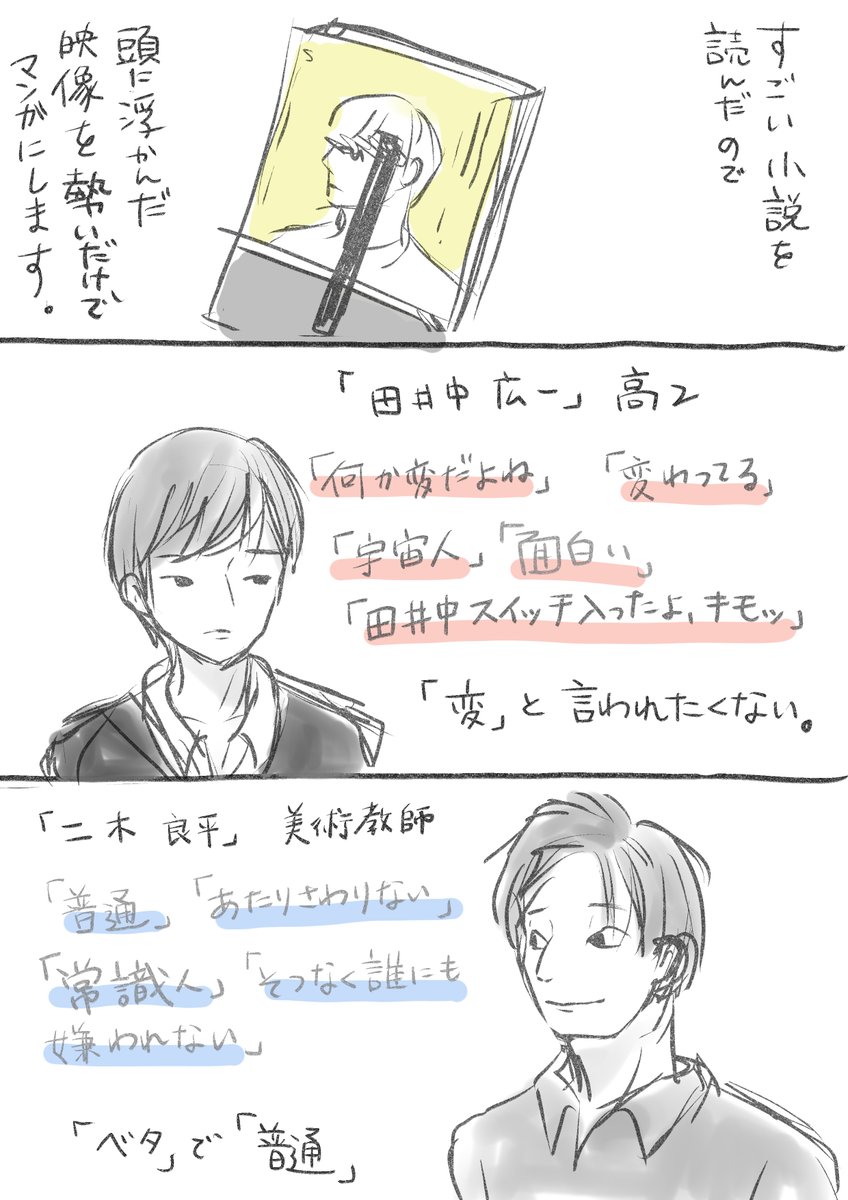 すごい小説を
読んだので
頭に浮かんだ
映像を勢いだけで
マンガにします。
「田井中 広一」 高2
「何か変だよね」 「変わってる」
「宇宙人」「面白い」
「田井中スイッチ入ったよ、キモッ」
「変」と言われたくない。
「二木 良平」 美術教師
「普通」「あたりさわりない」
「常識人」「そつなく誰にも
嫌われない」
「ベタ」で「普通」